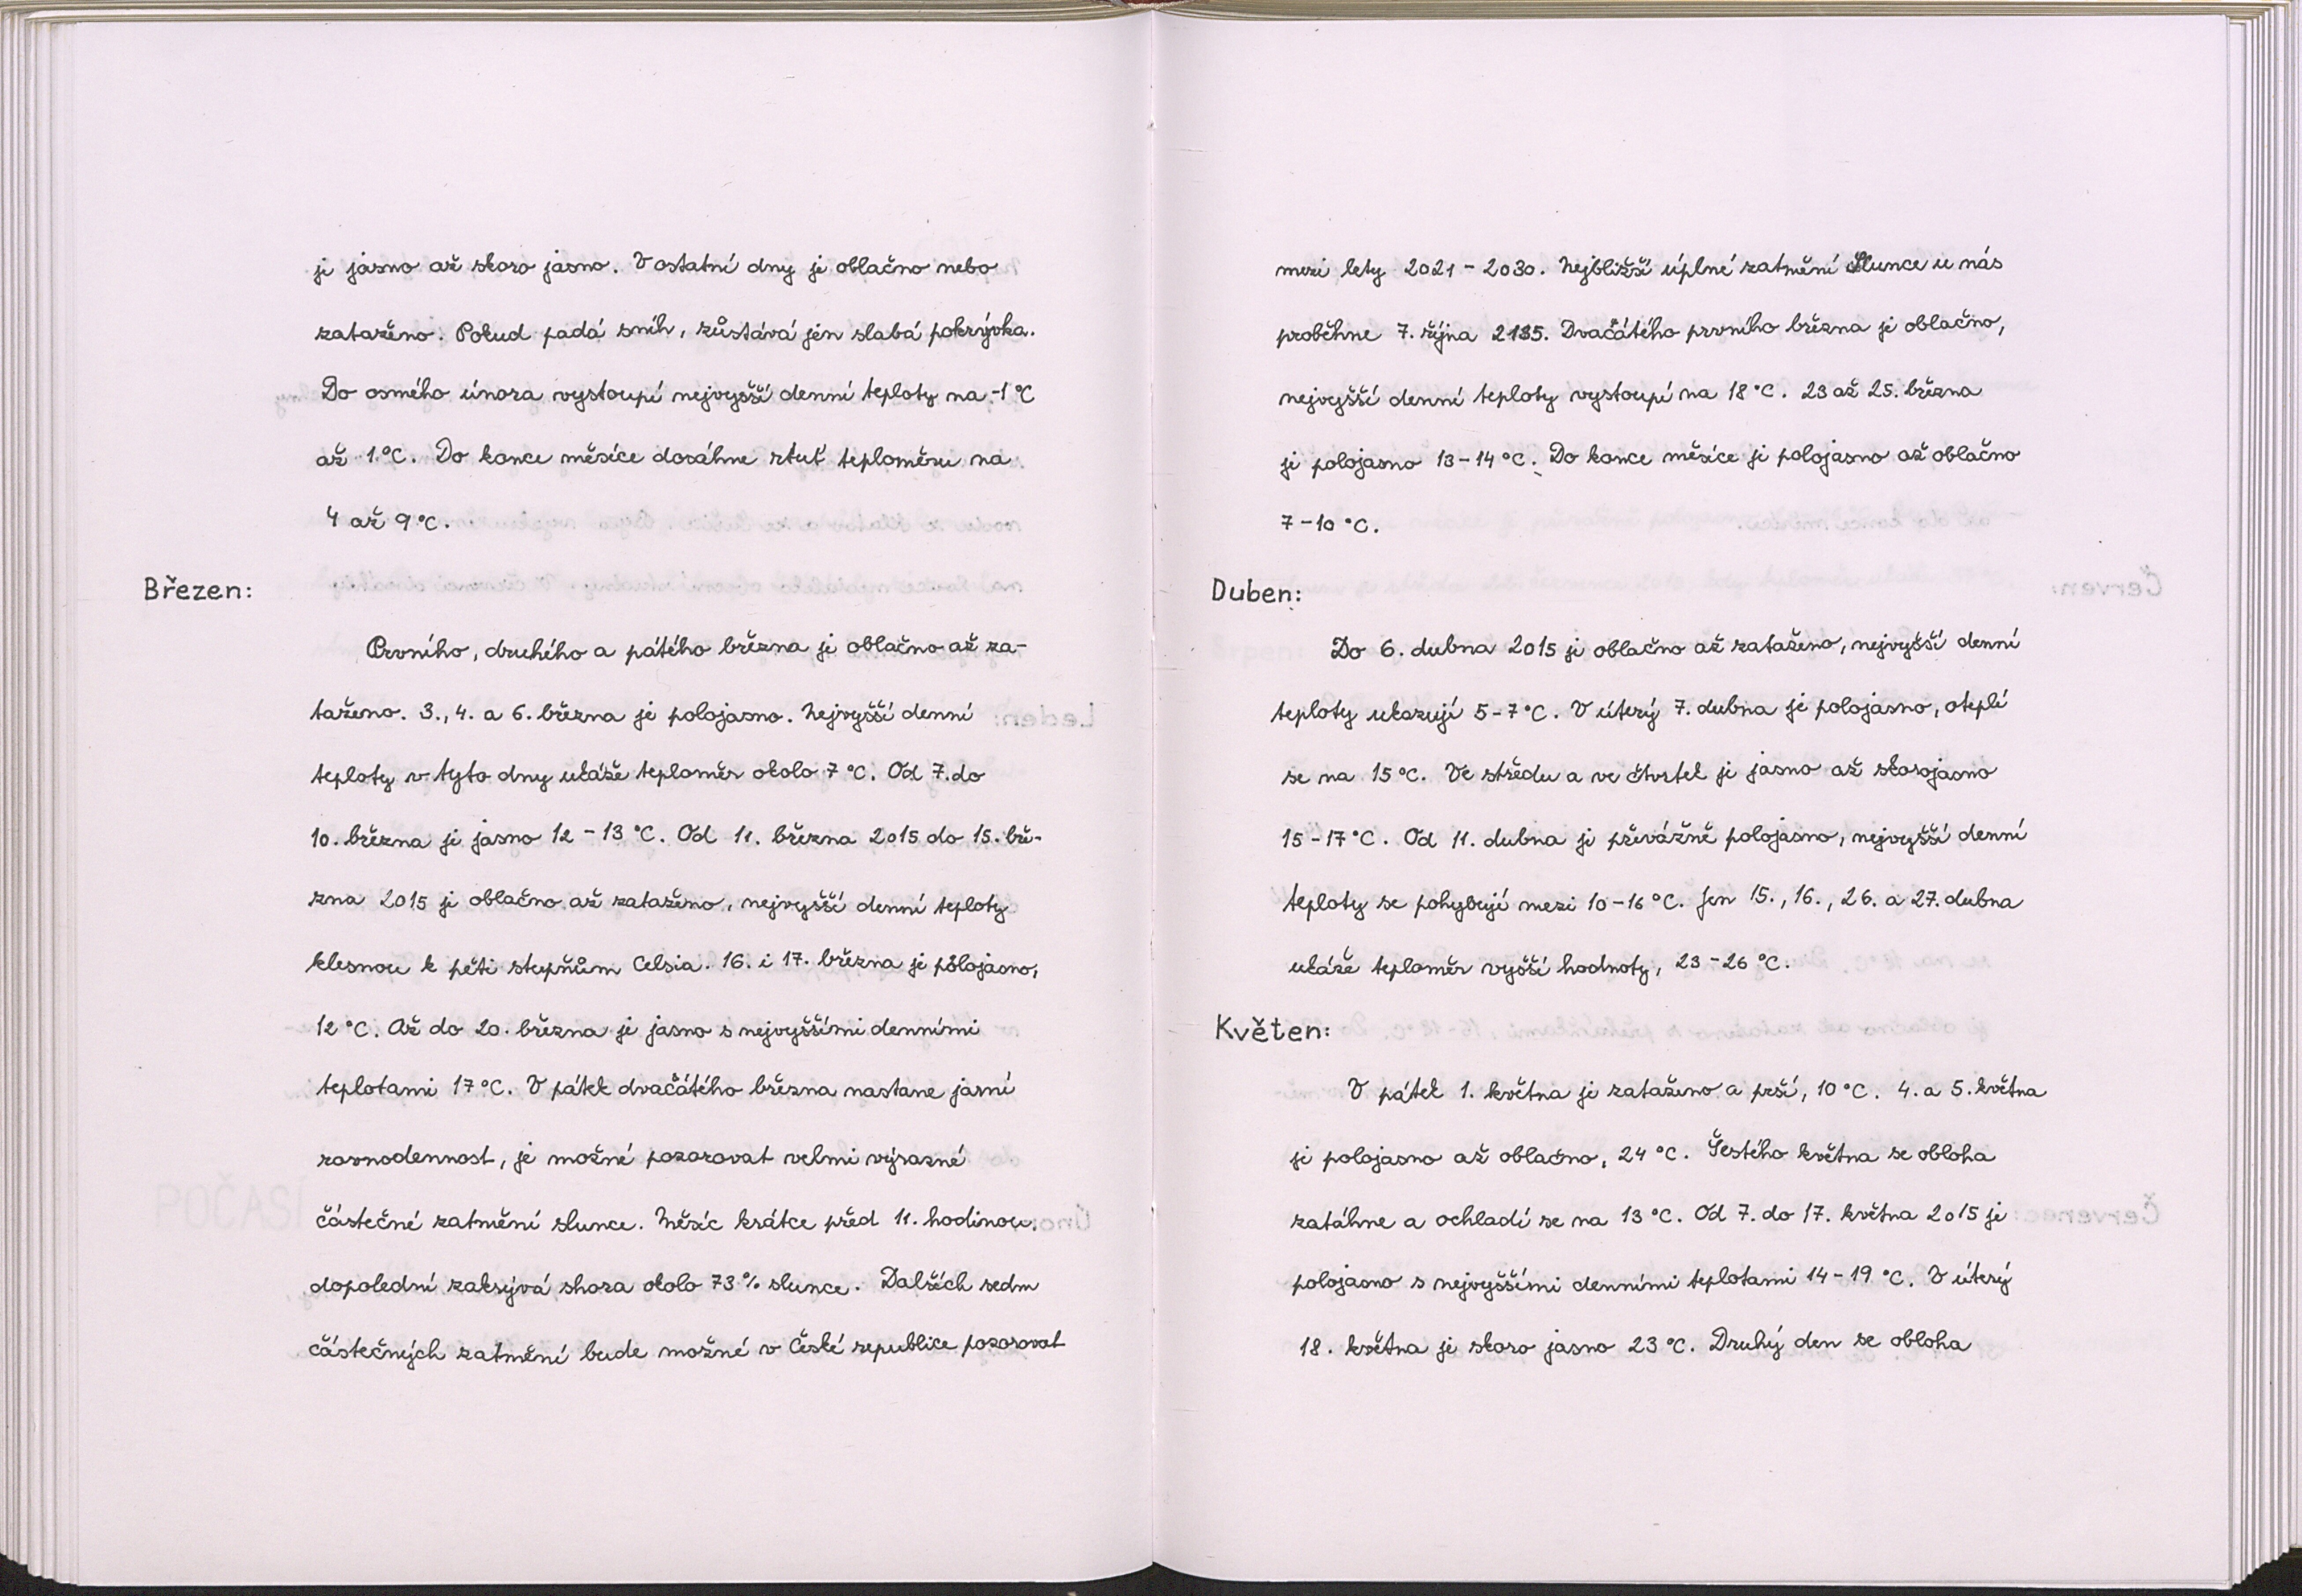 je jasno až skoro jasno. V ostatní dny je oblačno nebo
zataženo. Pokud padá sníh, zůstává jen slabá pokrývka.
Do osmého února vystoupí nejvyšší denní teploty na -1 °C
až 1 °C. Do konce měsíce dosáhne rtuť teploměru na
4 až 9 °C.
Březen:
Prvního, druhého a pátého března je oblačno až za-
taženo. 3., 4. a 6. března je polojasno. Nejvyšší denní
teploty v tyto dny ukáže teploměr okolo 7 °C. Od 7. do
10. března je jasno 12 - 13 °C. Od 11. března 2015 do 15. bře-
zna 2015 je oblačno až zataženo, nejvyšší denní teploty
klesnou k pěti stupňům Celsia. 16. i 17. března je polojasno,
12 °C. Až do 20. března je jasno s nejvyššími denními
teplotami 17 °C. V pátek dvacátého března nastane jarní
rovnodennost, je možné pozorovat velmi výrazné
částečné zatmění slunce. Měsíc krátce před 11. hodinou
dopolední zakrývá shora okolo 73 % slunce. Dalších sedm
částečných zatmění bude možné v České republice pozorovat
mezi lety 2021 - 2030. Nejbližší úplné zatmění Slunce u nás
proběhne 7. října 2135. Dvacátého prvního března je oblačno,
nejvyšší denní teploty vystoupí na 18 °C. 23 až 25. března
je polojasno 13 - 14 °C. Do konce měsíce je polojasno až oblačno
7 - 10 °C.
Duben:
Do 6. dubna 2015 je oblačno až zataženo, nejvyšší denní
teploty ukazují 5 - 7 °C. V úterý 7. dubna je polojasno, oteplí
se na 15 °C. Ve středu a ve čtvrtek je jasno až skorojasno
15 - 17 °C. Od 11. dubna je převážně polojasno, nejvyšší denní
teploty se pohybují mezi 10 - 16 °C. Jen 15., 16., 26. a 27. dubna
ukáže teploměr vyšší hodnoty, 23 - 26 °C.
Květen:
V pátek 1. května je zataženo a prší, 10 °C. 4. a 5. května
je polojasno až oblačno, 24 °C. Šestého května se obloha
zatáhne a ochladí se na 13 °C. Od 7. do 17. května 2015 je
polojasno s nejvyššími denními teplotami 14 - 19 °C. V úterý
18. května je skoro jasno 23 °C. Druhý den se obloha